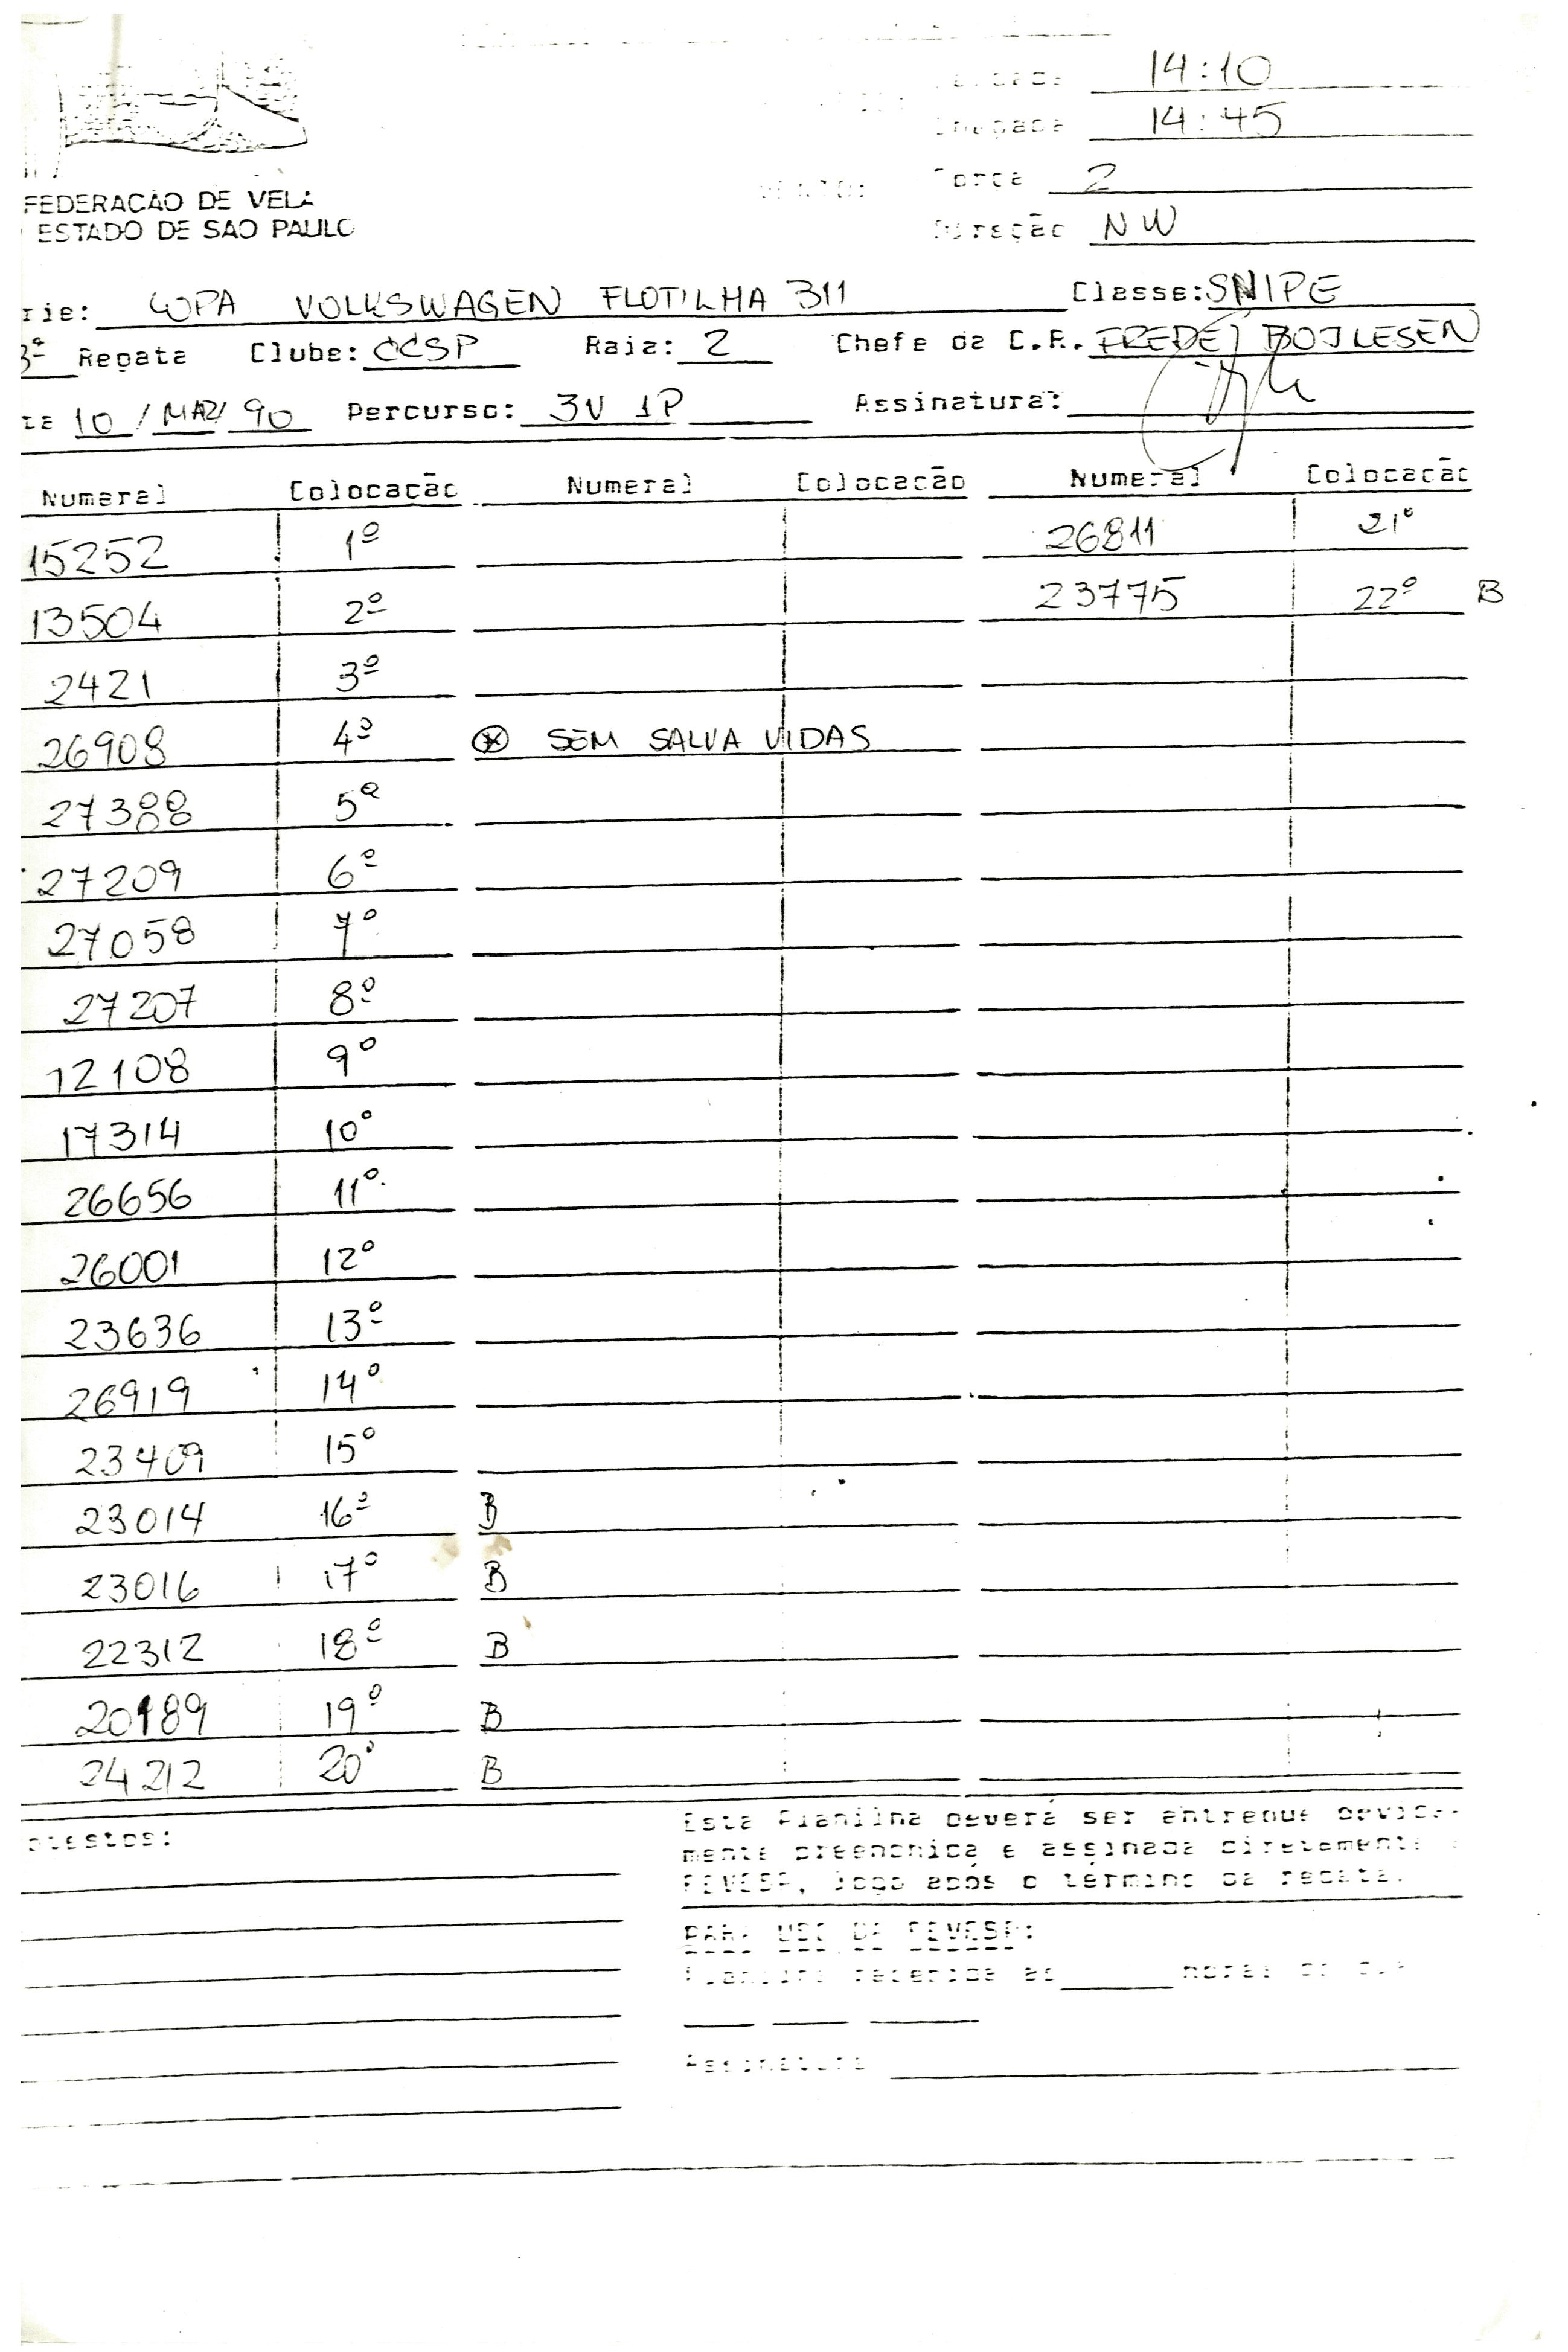 14:10
14:45
Força 2
FEDERAÇÃO DE VELA
ESTADO DE SAO PAULO
Direção NW
rie: COPA VOLKSWAGEN FLOTILHA 311 Classe: SNIPE
3ª Regata Clube: CCSP Raia: 2 Chefe da C.R. FREDEJ BOJLESEN
ta 10 / MAR / 90 Percurso: 3V 1P Assinatura:
Numeral Colocação Numeral Colocação Numeral Colocação
15252 1º 26811 21º
13504 2º 23775 22º B
2421 3º
26908 4º ⊛ SEM SALVA VIDAS
27388 5º
27209 6º
27058 7º
27207 8º
12108 9º
17314 10º
26656 11º
26001 12º
23636 13º
26919 14º
23409 15º
23014 16º B
23016 17º B
22312 18º B
20189 19º B
24212 20º B
otestos:
Esta Planilha deverá ser entregue devida-
mente preenchida e assinada diretamente
FEVESP, logo após o término da regata.
PARA USO DA FEVESP:
Planilha recebida as horas do dia
Assinatura